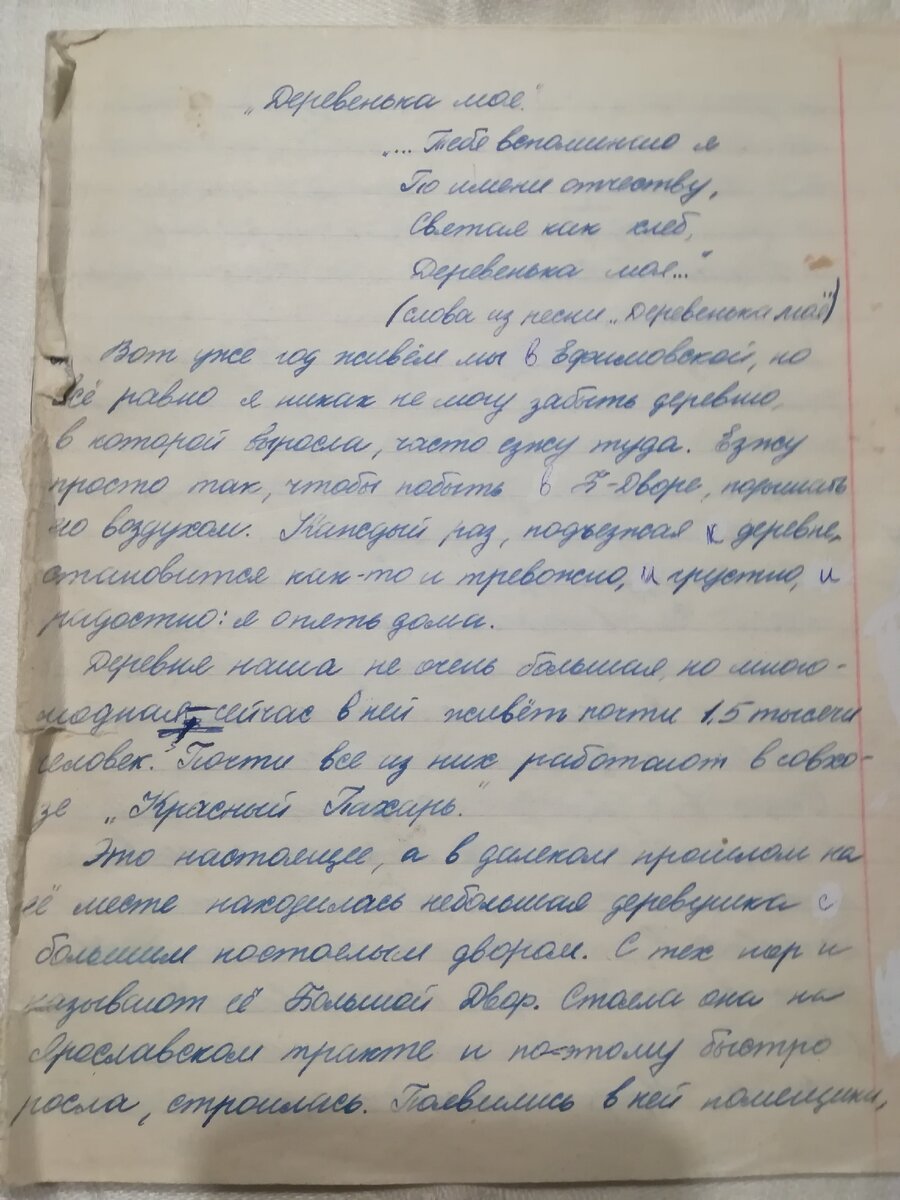 „Деревенька моя"
„... Тебя вспоминаю я
По имени отчеству,
Святая как хлеб,
Деревенька моя..."
(слова из песни „Деревенька моя")
Вот уже год живём мы в Ефимовской, но
всё равно я никак не могу забыть деревню,
в которой выросла, часто езжу туда. Езжу
просто так, чтобы побыть в Б-Дворе, подышать
его воздухом. Каждый раз, подъезжая к деревне,
становится как-то и тревожно, и грустно, и
радостно: я опять дома.
Деревня наша не очень большая, но много-
людная, сейчас в ней живёт почти 1,5 тысячи
человек. Почти все из них работают в совхо-
зе „Красный Пахарь."
Это настоящее, а в далеком прошлом на
её месте находилась небольшая деревушка с
большим постоялым двором. С тех пор и
называют её Большой Двор. Стояла она на
Ярославском тракте и по-этому быстро
росла, строилась. Появились в ней помещики,